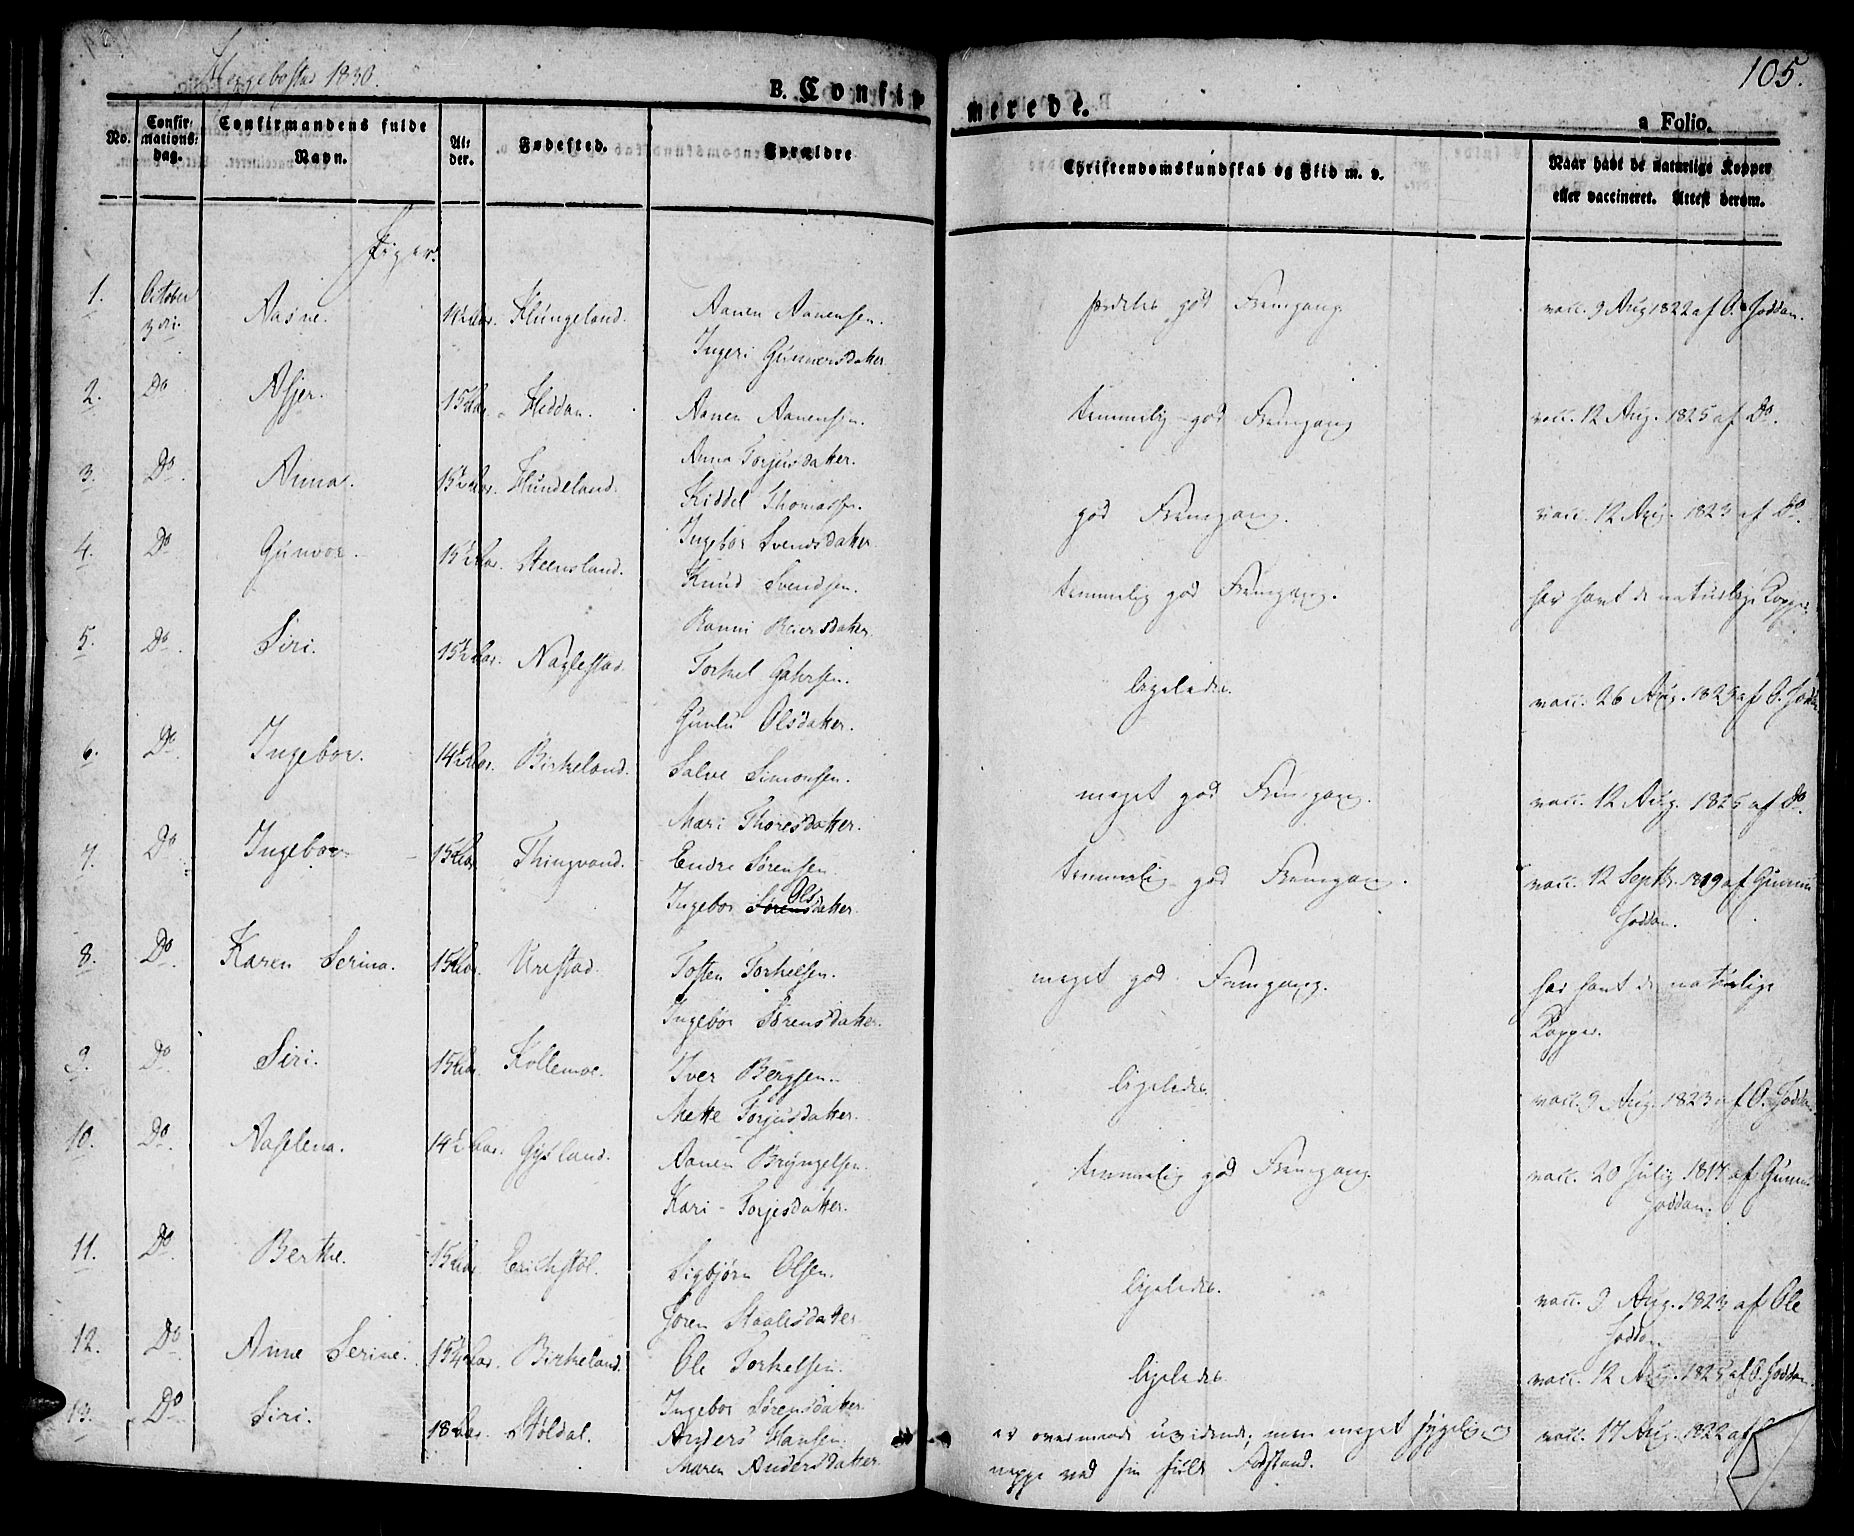 Heggebostad 1830.
105.
B. Confirmerede.
a Folio.
No. Confirmations-dag. Confirmandens fulde Navn. Alder. Fødested. Forældre Christendomskundskab og Flid m. v. Naar havt de naturlige Kopper eller vaccineret. Attest derom.
Piger.
1. October 3die. Aasne. 14½ Aar. Klungeland. Aanen Aanensen. særdeles god Fremgang. vacc. 9 Aug 1822 af O. Hoddan.
Ingeri Gunnersdatter.
2. Do Asjer. 15 Aar. Heddan. Aanen Aanensen. temmelig god Fremgang vacc. 12 Aug. 1825 af Do.
Anna Torjusdatter.
3. Do. Anna. 15½ Aar. Hundeland. Kiddel Thomassen. god Fremgang. vacc. 12 Aug. 1823 af Do.
Ingebor Svendsdatter
4. Do Gunvor. 15½ Aar. Steensland. Knud Svendsen. temmelig god Fremgang. har havt de naturlige Kopper.
Ranni Reiersdatter
5. Do. Siri. 15½ Aar. Naglestad. Torkel Gahrsen. ligeledes. vacc. 26 Aug. 1825 af O. Hoddan
Gunlu Olsdatter.
6. Do Ingebor. 14½ Aar. Birkeland. Salve Simonsen. meget god Fremgang. vacc. 12 Aug. 1825 af Do.
Mari Thoresdatter.
7. Do Ingebor 15 Aar Thingvand. Endre Sørensen temmelig god Fremgang. vacc. 12 Septbr. 1819 af Gunnu
Ingebor Sørens Olsdatter. Hoddan.
8. Do. Karen Serina. 15 Aar. Urestad. Tosten Torkelsen. meget god Fremgang. har havt de naturlige
Ingebor Sørensdatter. Kopper.
9. Do. Siri. 15 Aar. Kollemoe. Iver Bergsen. ligeledes. vacc. 9 Aug. 1823 af O. Hoddan.
Mette Torjusdatter.
10. Do. Aaselena. 14½ Aar. Gysland. Aanen Bryngelsen. temmelig god Fremgang. vacc. 20 July 1817 af Gunnu
Kari Torjesdatter. Hoddan.
11. Do. Berthe. 15 Aar. Erichstøl. Sigbjørn Olsen. ligeledes. vacc. 9 Aug. 1823 af Ole
Joren Staalesdatter Hoddan
12. Do Anne Serine. 15¼ Aar. Birkeland. Ole Torkelsen. ligeledes. vacc. 12 Aug. 1825 af O. Hoddan.
Ingebor Sørensdatter
13. Do Siri. 18 Aar. Støldal. Anders Hansen. er overmaade uvidende; men meget sygelig og vacc. 17 Aug. 1822 af
Maren Andersdatter neppe ved sin fulde Forstand.